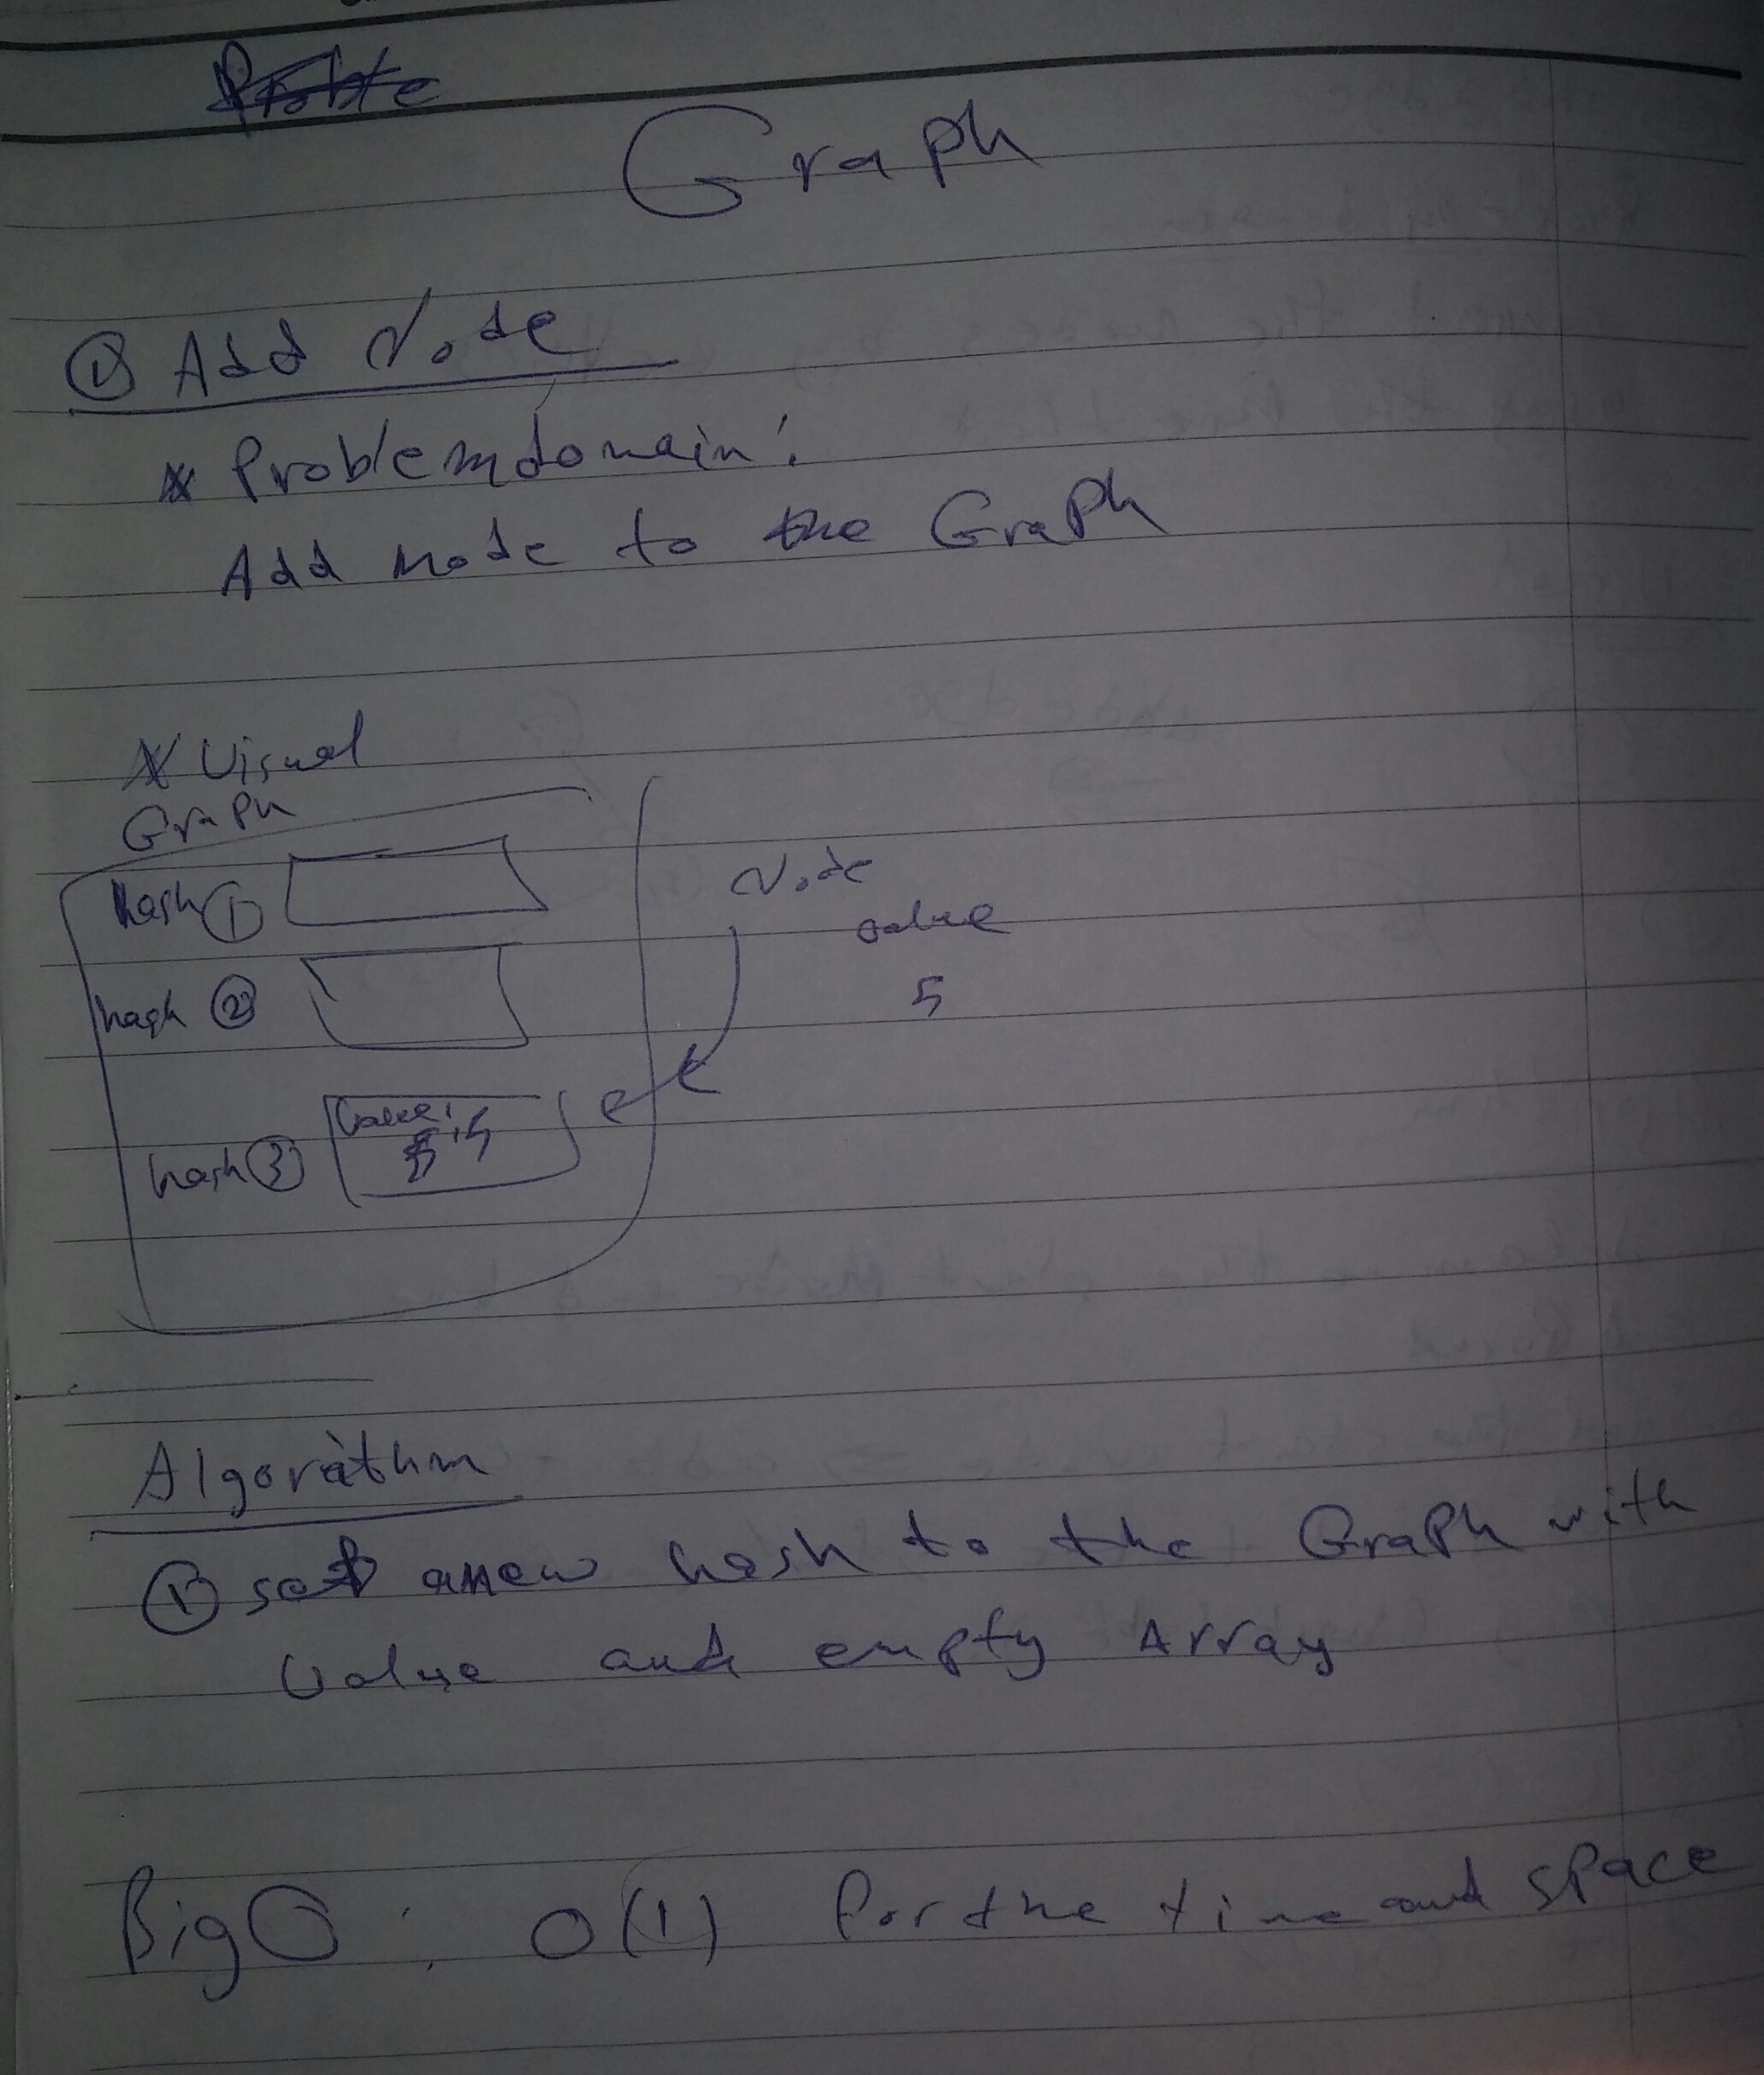 Graph
① Add Node
* Problem domain:
Add node to the Graph
* Visual
Graph
hash ①
Node
value
5
hash ②
hash ③
value:
5
Algorithm
① set a new hash to the Graph with
value and empty Array
Big O : O(1) for the time and space